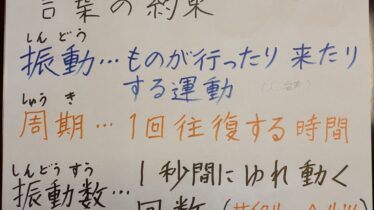 言葉の約束
しんどう
振動…ものが行ったり来たり
する運動
しゅうき
周期…1回往復する時間
しんどうすう
振動数…1秒間にゆれ動く
回数(サイクル、ヘルツ